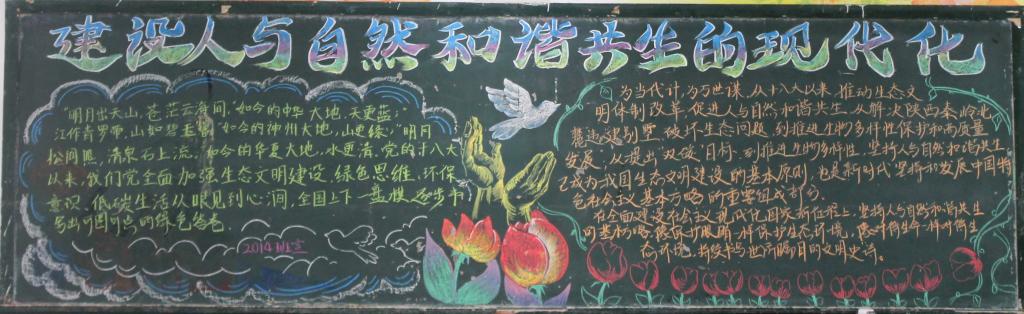 建设人与自然和谐共生的现代化
"明月出天山,苍茫云海间,"如今的中华大地,天更蓝;
江作青罗带,山如碧玉簪"如今的神州大地,山更绿;"明月
松间照,清泉石上流,"如今的华夏大地,水更清,党的十八大
以来,我们党全面加强生态文明建设,绿色思维,环保
意识,低碳生活从眼见到心间,全国上下一盘棋逐步书
写出可圈可点的绿色答卷
2014班宣
为当代计,为万世谋,从十八大以来,推动生态文
明体制改革,促进人与自然和谐共生,从解决陕西秦岭北
麓违建别墅破坏生态问题,到推进生物多样性保护和高质量
发展,从提出"双碳"目标,到推进生物多样性,坚持人与自然和谐共生
已成为我国生态文明建设的基本原则,也是新时代坚持和发展中国特
色社会主义基本方略的重要组成部分。
在全面建设社会主义现代化国家新征程上,坚持人与自然和谐共生
的基本方略,像保护眼睛一样保护生态环境,像对待生命一样对待生
态环境,将授书写世所瞩目的文明史诗。